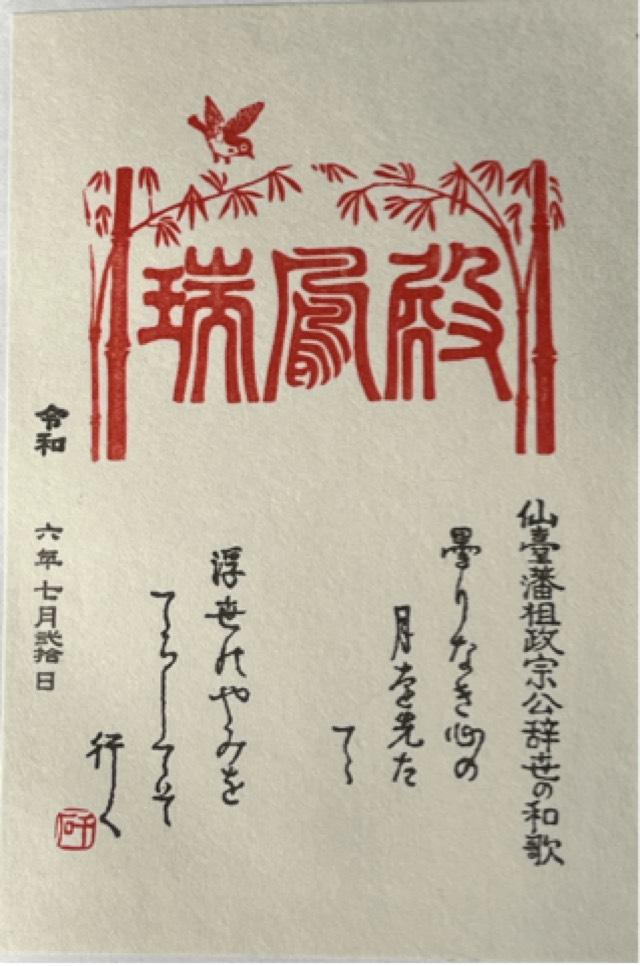 瑞鳳殿
仙臺藩祖政宗公辞世の和歌
曇りなき心の
月を先た
てゝ
浮世のやみを
てらしてそ
行く
令和 六年七月弐拾日